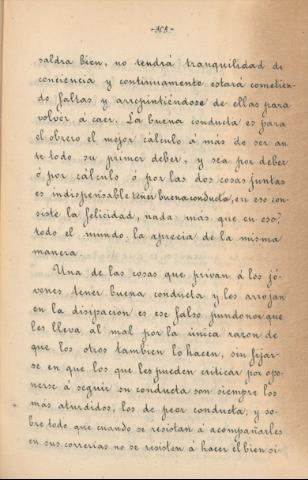 saldra bien, no tendrá tranquilidad de
conciencia y continuamente estará cometien-
do faltas y arrepintiéndose de ellas para
volver á caer. La buena conducta es para
el obrero el mejor cálculo á más de ser an-
te todo su primer deber, y sea por deber
ó por cálculo ó por las dos cosas juntas
es indispensable tener buena conducta, en eso con-
siste la felicidad, nada más que en eso;
todo el mundo la aprecia de la misma
manera.
Una de las cosas que privan á los jó-
venes tener buena conducta y les arrojan
en la disipacion es ese falso pundonor que
les lleva al mal por la única razon de
que los otros tambien lo hacen, sin fijar-
se en que los que les pueden criticar por opo-
nerse á seguir su conducta son siempre los
más aturdidos, los de peor conducta, y so-
bre todo que cuando se resistan á acompañarles
en sus correrias no se resisten á hacer el bien si-